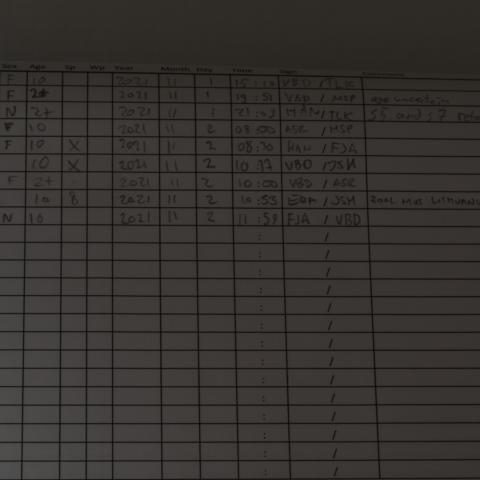 Sex Age Sp Wp Year Month Day Time Sign Comments
F 10 2021 11 1 15:10 VBD / TLK
F 2+ 2021 11 1 19:51 VBD / MSP age uncertain
N 2+ 2021 11 1 21:03 HAN / TLK S5 and S7
F 10 2021 11 2 08:00 ASR / MSP
F 10 X 2021 11 2 08:30 HAN / FJA
10 X 2021 11 2 10:17 VBD / JSM
F 2+ - 2021 11 2 10:00 VBD / ASR
10 8 2021 11 2 10:53 / JSM ZOOL MUS LITHUANI
N 10 2021 11 2 11:59 FJA / VBD
: /
: /
: /
: /
: /
: /
: /
: /
: /
: /
: /
: /
: /
: /